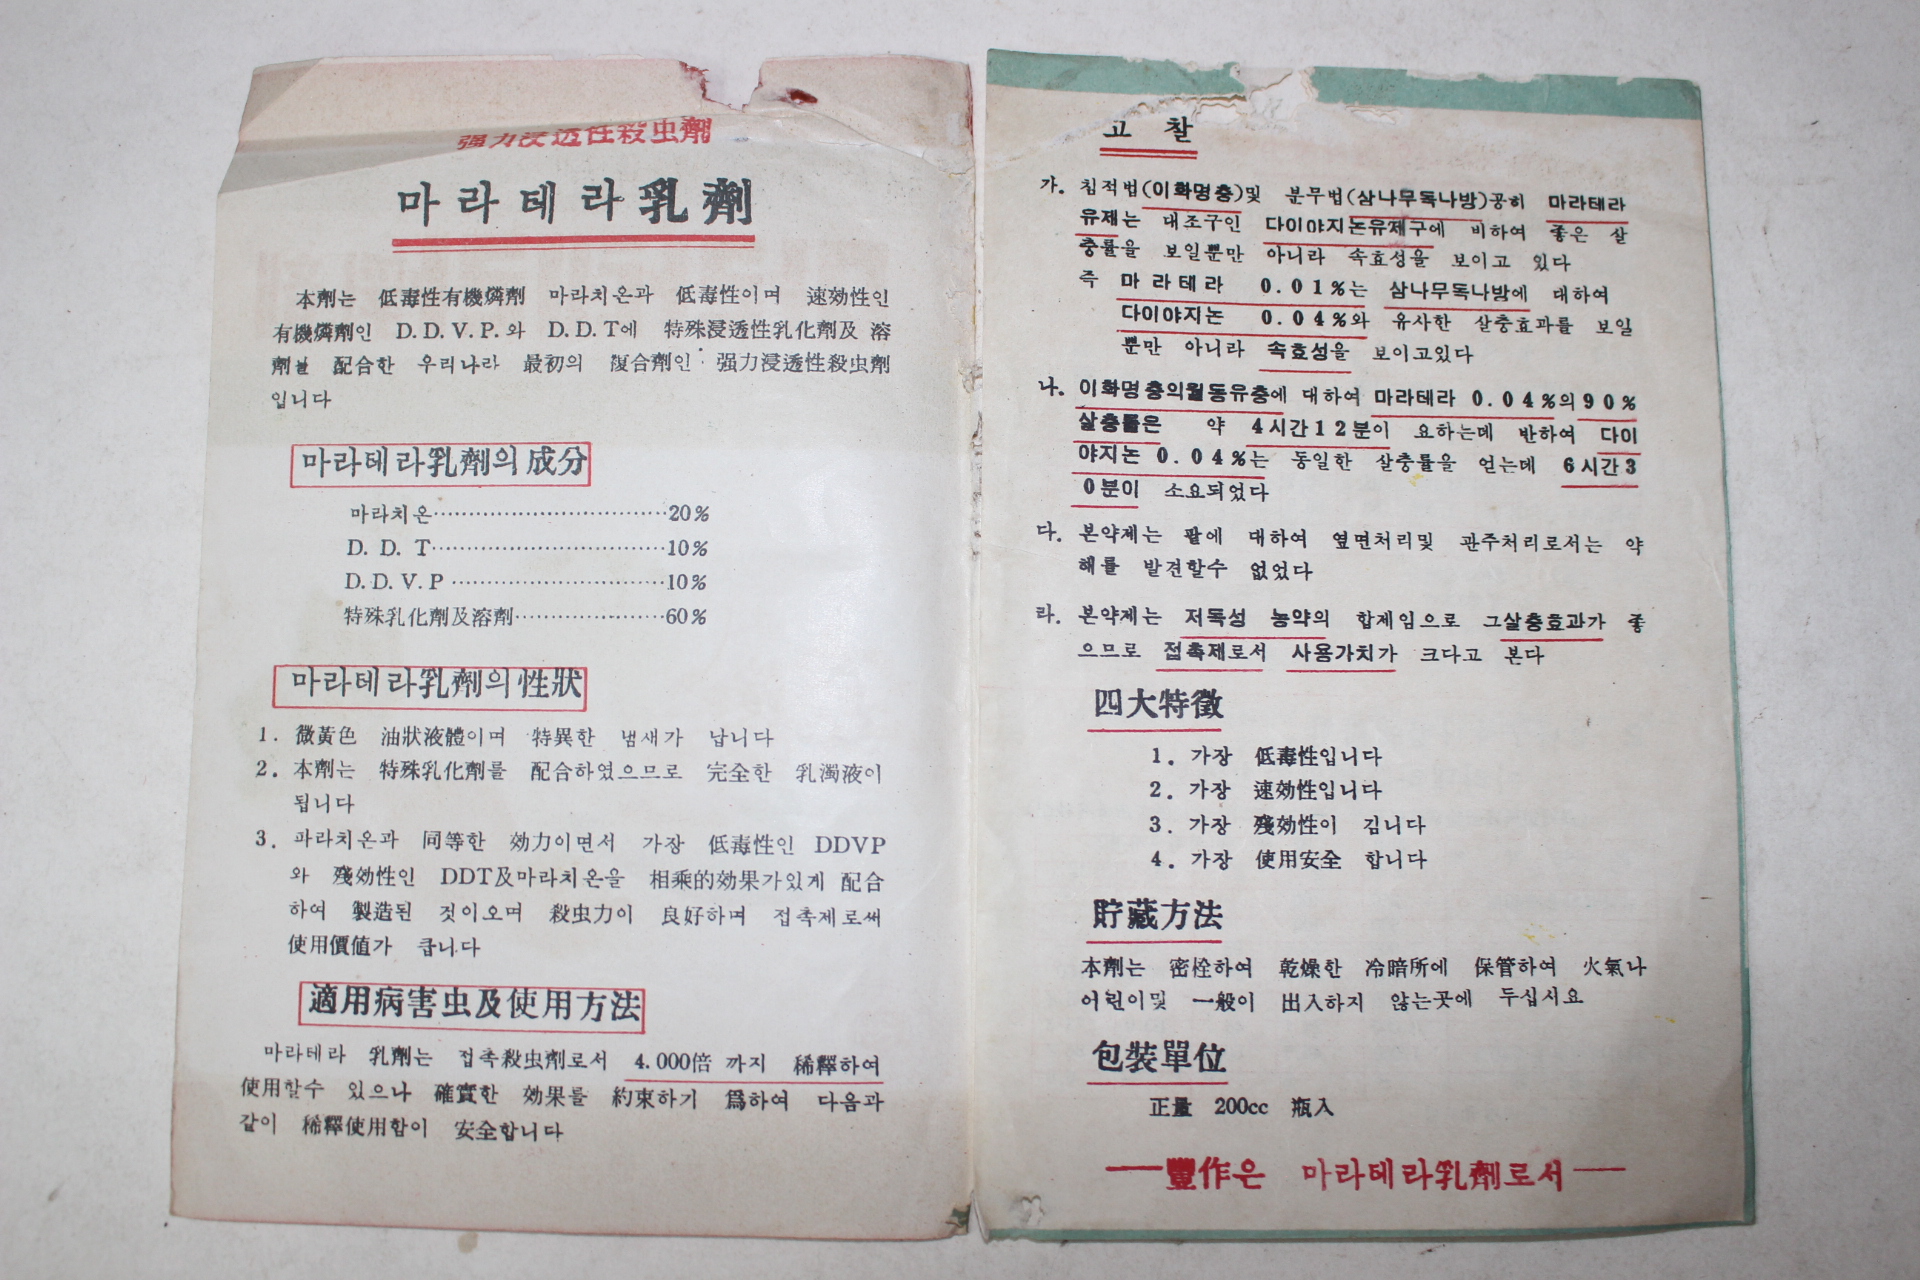 強力浸透性殺虫劑
마라테라乳劑
本劑는 低毒性有機燐劑 마라치온과 低毒性이며 速効性인
有機燐劑인 D.D.V.P.와 D.D.T에 特殊浸透性乳化劑及 溶
劑를 配合한 우리나라 最初의 復合劑인 强力浸透性殺虫劑
입니다
마라테라乳劑의 成分
마라치온································20%
D. D. T································10%
D.D.V.P·····························10%
特殊乳化劑及溶劑·····················60%
마라테라乳劑의 性狀
1. 微黃色 油狀液體이며 特異한 냄새가 납니다
2. 本劑는 特殊乳化劑를 配合하였으므로 完全한 乳濁液이
됩니다
3. 파라치온과 同等한 効力이면서 가장 低毒性인 DDVP
와 殘効性인 DDT及마라치온을 相乘的効果가있게 配合
하여 製造된 것이오며 殺虫力이 良好하며 접촉제로써
使用價値가 큽니다
適用病害虫及使用方法
마라테라 乳劑는 접촉殺虫劑로서 4.000倍 까지 稀釋하여
使用할수 있으나 確實한 効果를 約束하기 爲하여 다음과
같이 稀釋使用함이 安全합니다
고 찰
가. 침적법(이화명충)및 분무법(삼나무독나방)공히 마라테라
유제는 대조구인 다이야지논유제구에 비하여 좋은 살
충률을 보일뿐만 아니라 속효성을 보이고 있다
즉 마라테라 0.01%는 삼나무독나방에 대하여
다이야지논 0.04%와 유사한 살충효과를 보일
뿐만 아니라 속효성을 보이고있다
나. 이화명충의월동유충에 대하여 마라테라 0.04%의90%
살충률은 약 4시간12분이 요하는데 반하여 다이
야지논 0.04%는 동일한 살충률을 얻는데 6시간3
0분이 소요되었다
다. 본약제는 팥에 대하여 엽면처리및 관주처리로서는 약
해를 발견할수 없었다
라. 본약제는 저독성 농약의 합제임으로 그살충효과가 좋
으므로 접촉제로서 사용가치가 크다고 본다
四大特徵
1. 가장 低毒性입니다
2. 가장 速効性입니다
3. 가장 殘効性이 김니다
4. 가장 使用安全 합니다
貯藏方法
本劑는 密栓하여 乾燥한 冷暗所에 保管하여 火氣나
어린이및 一般이 出入하지 않는곳에 두십시요
包裝單位
正量 200cc 瓶入
—豐作은 마라테라乳劑로서—